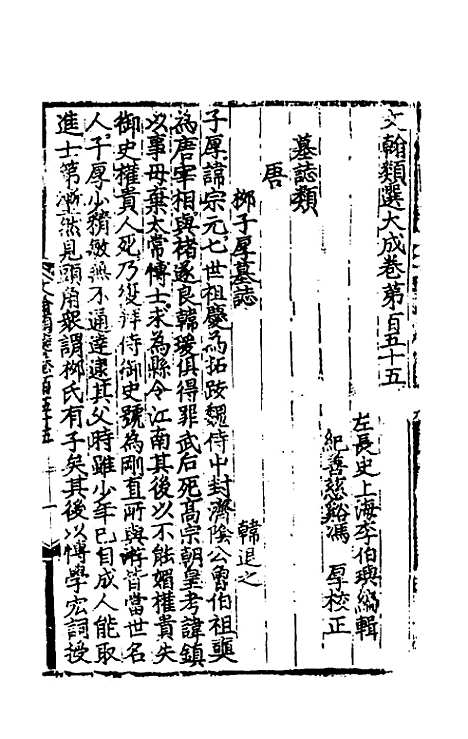 文翰類選大成卷第一百五十五
左長史上海李伯璵編輯
紀善慈谿馮厚校正
墓誌類
唐
柳子厚墓誌
韓退之
子厚諱宗元七世祖慶為拓跋魏侍中封濟陰公曾伯祖奭
為唐宰相與褚遂良韓瑗俱得罪武后死高宗朝皇考諱鎮
以事母棄太常博士求為縣令江南其後以不能媚權貴失
御史權貴人死乃復拜侍御史號為剛直所與游皆當世名
人子厚少精敏無不通達逮其父時雖少年已自成人能取
進士第嶄然見頭角衆謂柳氏有子矣其後以博學宏詞授